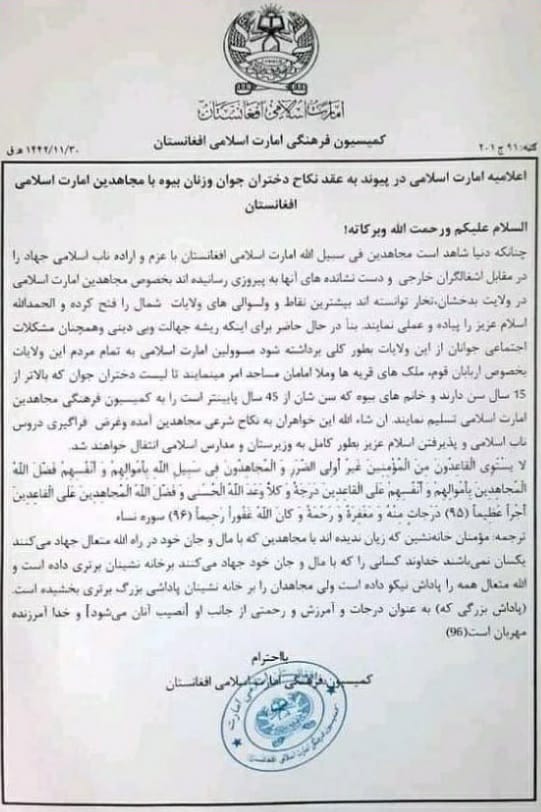 امارت اسلامی افغانستان
کمیسیون فرهنگی امارت اسلامی افغانستان
۱۴۴۲/۱۱/۳۰ ه ق
اعلامیه امارت اسلامی در پیوند به عقد نکاح دختران جوان وزنان بیوه با مجاهدین امارت اسلامی
افغانستان
السلام علیکم ورحمت الله وبرکاته!
چنانکه دنیا شاهد است مجاهدین فی سبیل الله امارت اسلامی افغانستان با عزم و اراده ناب اسلامی جهاد را
در مقابل اشغالگران خارجی و دست نشانده های آنها به پیروزی رسانیده اند بخصوص مجاهدین امارت اسلامی
در ولایت بدخشان،تخار توانسته اند بیشترین نقاط و ولسوالی های ولایات شمال را فتح کرده و الحمدالله
اسلام عزیز را پیاده و عملی نمایند. بنأ در حال حاضر برای اینکه ریشه جهالت وبی دینی وهمچنان مشکلات
اجتماعی جوانان از این ولایات بطور کلی برداشته شود مسوولین امارت اسلامی به تمام مردم این ولایات
بخصوص اربابان قوم، ملک های قریه ها وملا امامان مساجد امر مینمایند تا لیست دختران جوان که بالاتر از
15 سال سن دارند و خانم های بیوه که سن شان از 45 سال پایینتر است را به کمیسیون فرهنگی مجاهدین
امارت اسلامی تسلیم نمایند. ان شاء الله این خواهران به نکاح شرعی مجاهدین آمده وغرض فراگیری دروس
ناب اسلامی و پذیرفتن اسلام عزیز بطور کامل به وزیرستان و مدارس اسلامی انتقال خواهند شد.
لا یستوی القاعدون من المؤمنین غیر أولی الضرر و المجاهدون فی سبیل الله بأموالهم و أنفسهم فضل الله
المجاهدین بأموالهم و أنفسهم علی القاعدین درجة و کلا وعد الله الحسنی و فضل الله المجاهدین علی القاعدین
أجرا عظیما (۹۵) درجات منه و مغفرة و رحمة و کان الله غفورا رحیما (۹۶) سوره نساء
ترجمه: مؤمنان خانه‌نشین که زیان ندیده اند با مجاهدین که با مال و جان خود در راه الله متعال جهاد می‌کنند
یکسان نمی‌باشند خداوند کسانی را که با مال و جان خود جهاد می‌کنند برخانه نشینان برتری داده است و
الله متعال همه را پاداش نیکو داده است ولی مجاهدان را بر خانه نشینان پاداشی بزرگ برتری بخشیده است.
(پاداش بزرگی که) به عنوان درجات و آمرزش و رحمتی از جانب او [نصیب آنان می‌شود] و خدا آمرزنده
مهربان است(96)
بااحترام
کمیسیون فرهنگی امارت اسلامی افغانستان